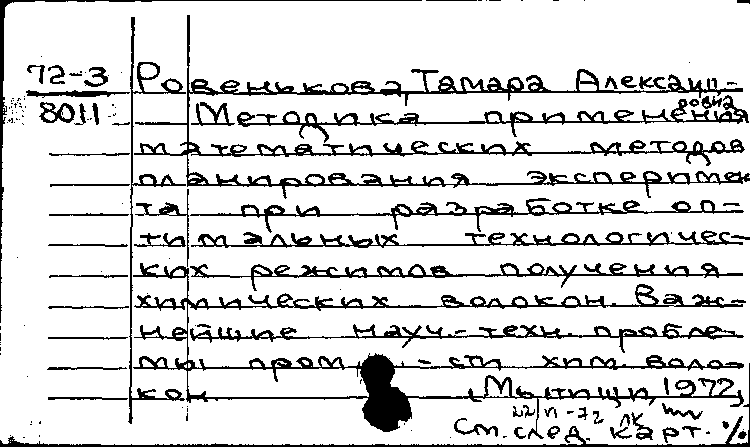 72-3 Ровенькова, Тамара Александ-
ровна
8011 Методика применения
математических методов
планирования эксперимен
та при разработке оп-
тимальных технологичес-
ких режимов получения
химических волокон. Важ-
нейшие науч.-техн. пробле-
мы пром-сти хим. воло-
кон. , Мытищи, 1972,
22/II-72 ЛК
См. след. карт. %